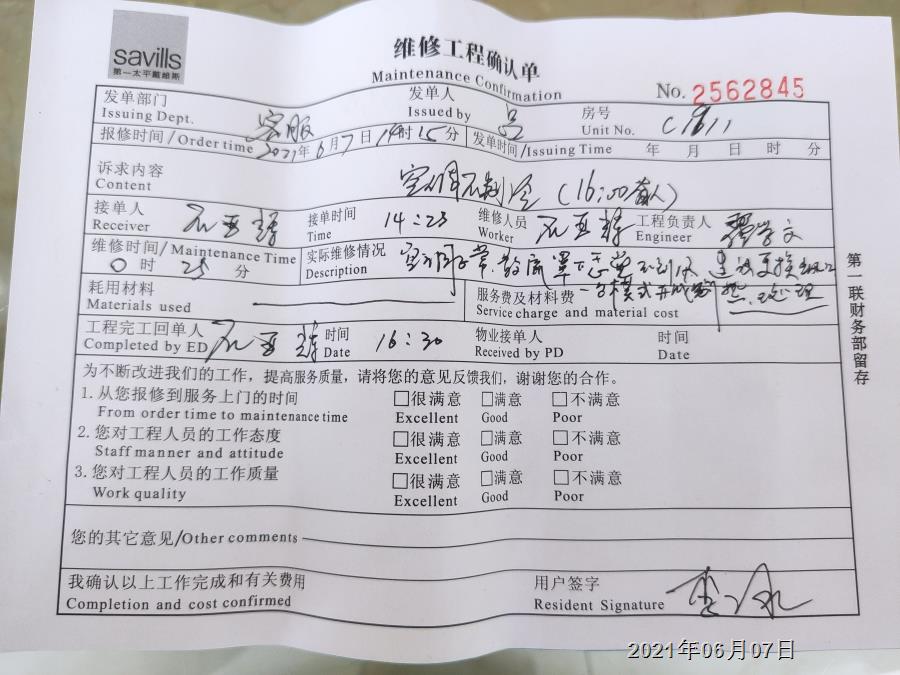 savills
第一太平戴維斯
维修工程确认单
Maintenance Confirmation
No. 2562845
发单部门 客服
Issuing Dept.
发单人
Issued by 吕
房号
Unit No.
报修时间/Order time 2021年6月7日14时15分
发单时间/Issuing Time 年 月 日 时 分
诉求内容 空调不制冷 (16:00有人)
Content
接单人
Receiver
接单时间 14:23
Time
维修人员
Worker
工程负责人
Engineer
维修时间/Maintenance Time
0时25分
实际维修情况
Description
耗用材料
Materials used
服务费及材料费
Service charge and material cost
工程完工回单人
Completed by ED
时间 16:30
Date
物业接单人
Received by PD
时间
Date
为不断改进我们的工作，提高服务质量，请将您的意见反馈我们，谢谢您的合作。
1.从您报修到服务上门的时间 □很满意 □满意 □不满意
From order time to maintenance time Excellent Good Poor
2.您对工程人员的工作态度 □很满意 □满意 □不满意
Staff manner and attitude Excellent Good Poor
3.您对工程人员的工作质量 □很满意 □满意 □不满意
Work quality Excellent Good Poor
您的其它意见/Other comments
我确认以上工作完成和有关费用
Completion and cost confirmed
用户签字
Resident Signature
第一联财务部留存
2021年06月07日